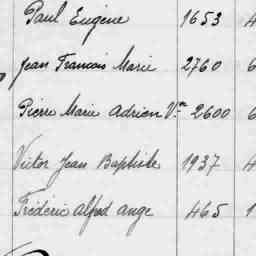 Paul Eugène 1653 4
Jean François Marie 2760 6
Pierre Marie Adrien Vve 2600 6
Victor Jean Baptiste 1937 4
Frédéric Alfred Ange 465 1